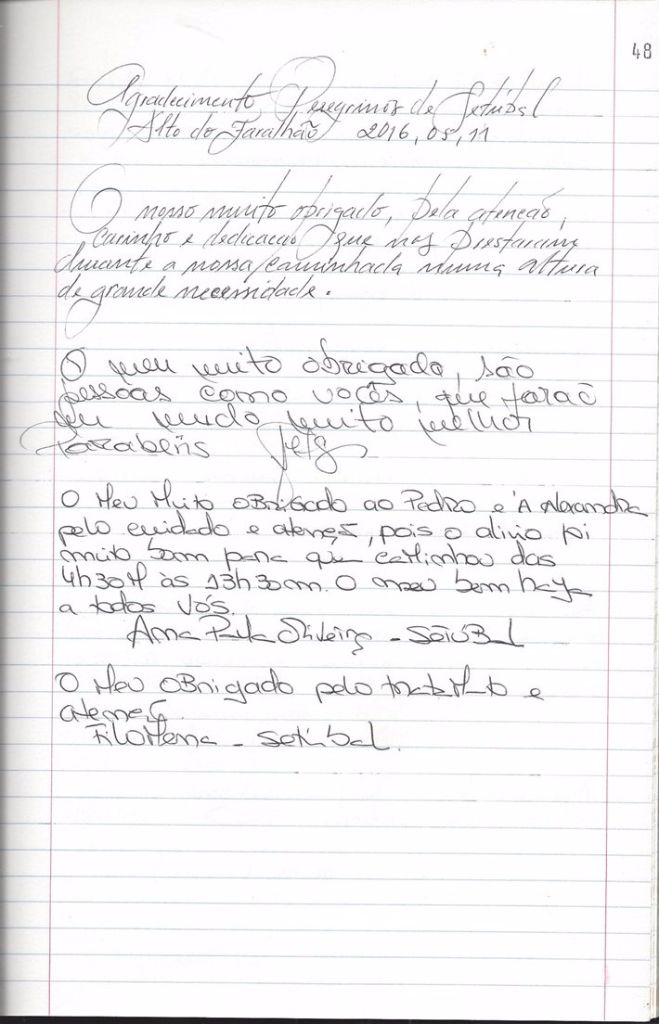 48
Agradecimento Peregrinos de Setúbal
Alto do Faralhão 2016, 05, 11
O nosso muito obrigado, pela atenção,
carinho e dedicação que nos prestaram
durante a nossa caminhada numa altura
de grande necessidade.
O meu muito obrigado, são
pessoas como vocês, que farão
um mundo muito melhor
Parabéns
O Meu Muito obrigado ao Pedro e À Alexandra
pelo cuidado e atenção, pois o alivio foi
muito bom para quem caminhou das
4h30M às 13h30m. O meu bem haja
a todos Vós.
Ana Paula Oliveira - Setúbal
O Meu obrigado pelo tratamento e
atenção.
Filomena - Setúbal.